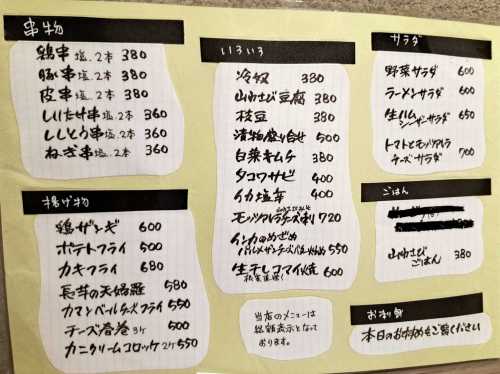 串物
鶏串 塩.2本 380
豚串 塩.2本 380
皮串 塩.2本 380
しいたけ串 塩.2本 360
ししとう串 塩.2本 360
ねぎ串 塩.2本 360
揚げ物
鶏ザンギ 600
ポテトフライ 500
カキフライ 680
長芋の天婦羅 580
カマンベールチーズフライ 550
チーズ春巻 3ヶ 500
カニクリームコロッケ 2ヶ 550
いろいろ
冷奴 380
山わさび豆腐 380
枝豆 380
漬物盛り合せ 500
白菜キムチ 380
タコワサビ 400
イカ塩辛 400
モッツァレラチーズ刺 720
インカのめざめ
パルメザンチーズバター炒め 550
生干しコマイ焼 600
当店のメニューは
総額表示となって
おります。
サラダ
野菜サラダ 600
ラーメンサラダ 600
生ハム
シーザーサラダ 650
トマトとモッツァレラ
チーズサラダ 700
ごはん
山わさび
ごはん 380
お刺身
本日のおすすめをご覧ください